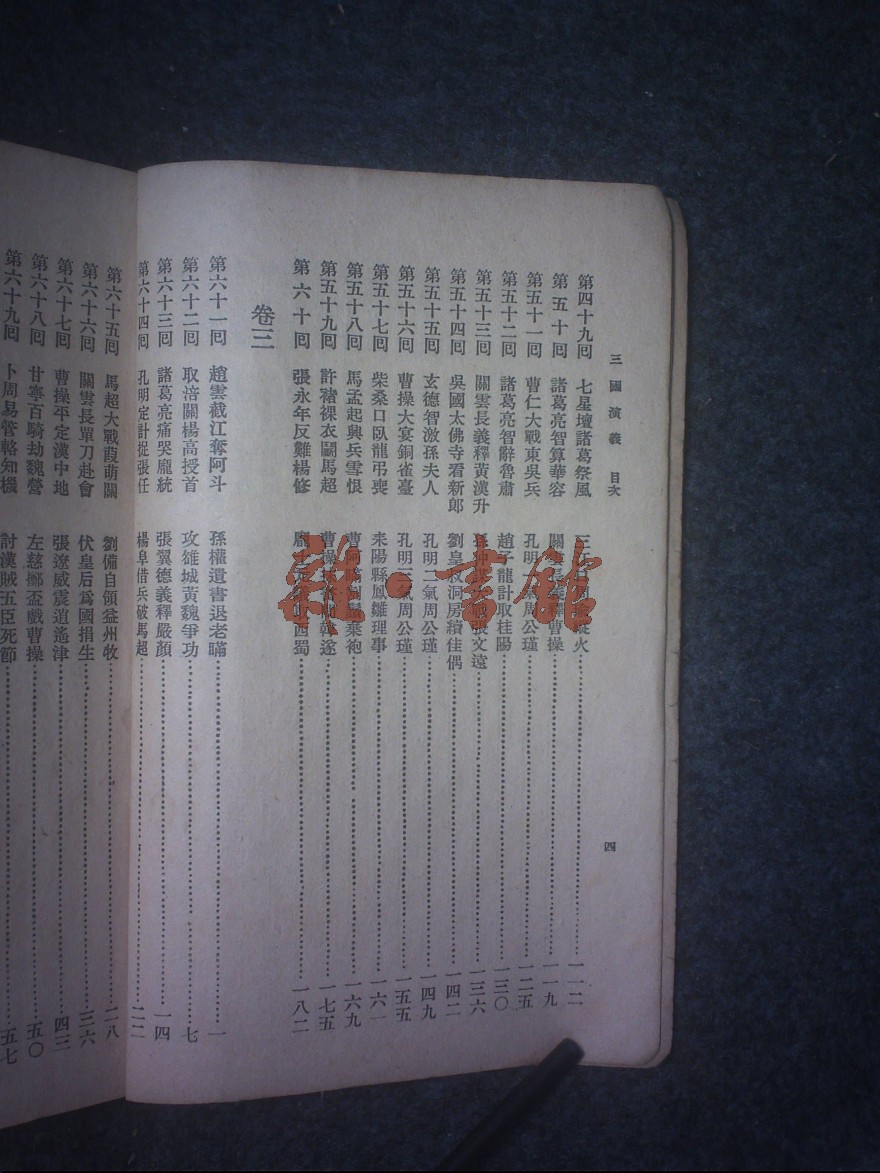 三國演義 目次
四
第四十九囘 七星壇諸葛祭風 三江口周瑜縱火 一一二
第五十囘 諸葛亮智算華容 關雲長義釋曹操 一一九
第五十一囘 曹仁大戰東吳兵 孔明一氣周公瑾 一二五
第五十二囘 諸葛亮智辭魯肅 趙子龍計取桂陽 一三〇
第五十三囘 關雲長義釋黃漢升 孫仲謀大戰張文遠 一三六
第五十四囘 吳國太佛寺看新郎 劉皇叔洞房續佳偶 一四二
第五十五囘 玄德智激孫夫人 孔明二氣周公瑾 一四九
第五十六囘 曹操大宴銅雀臺 孔明三氣周公瑾 一五五
第五十七囘 柴桑口臥龍弔喪 耒陽縣鳳雛理事 一六一
第五十八囘 馬孟起興兵雪恨 曹阿瞞割鬚棄袍 一六九
第五十九囘 許褚裸衣鬭馬超 曹操 韓遂 一七五
第六十囘 張永年反難楊修 龐 西蜀 一八二
卷三
第六十一囘 趙雲截江奪阿斗 孫權遺書退老瞞 一
第六十二囘 取涪關楊高授首 攻雄城黃魏爭功 七
第六十三囘 諸葛亮痛哭龐統 張翼德義釋嚴顏 一四
第六十四囘 孔明定計捉張任 楊阜借兵破馬超 二二
第六十五囘 馬超大戰葭萌關 劉備自領益州牧 二八
第六十六囘 關雲長單刀赴會 伏皇后爲國捐生 三六
第六十七囘 曹操平定漢中地 張遼威震逍遙津 四三
第六十八囘 甘寧百騎劫魏營 左慈擲盃戲曹操 五〇
第六十九囘 卜周易管輅知機 討漢賊五臣死節 五七
雜·書館